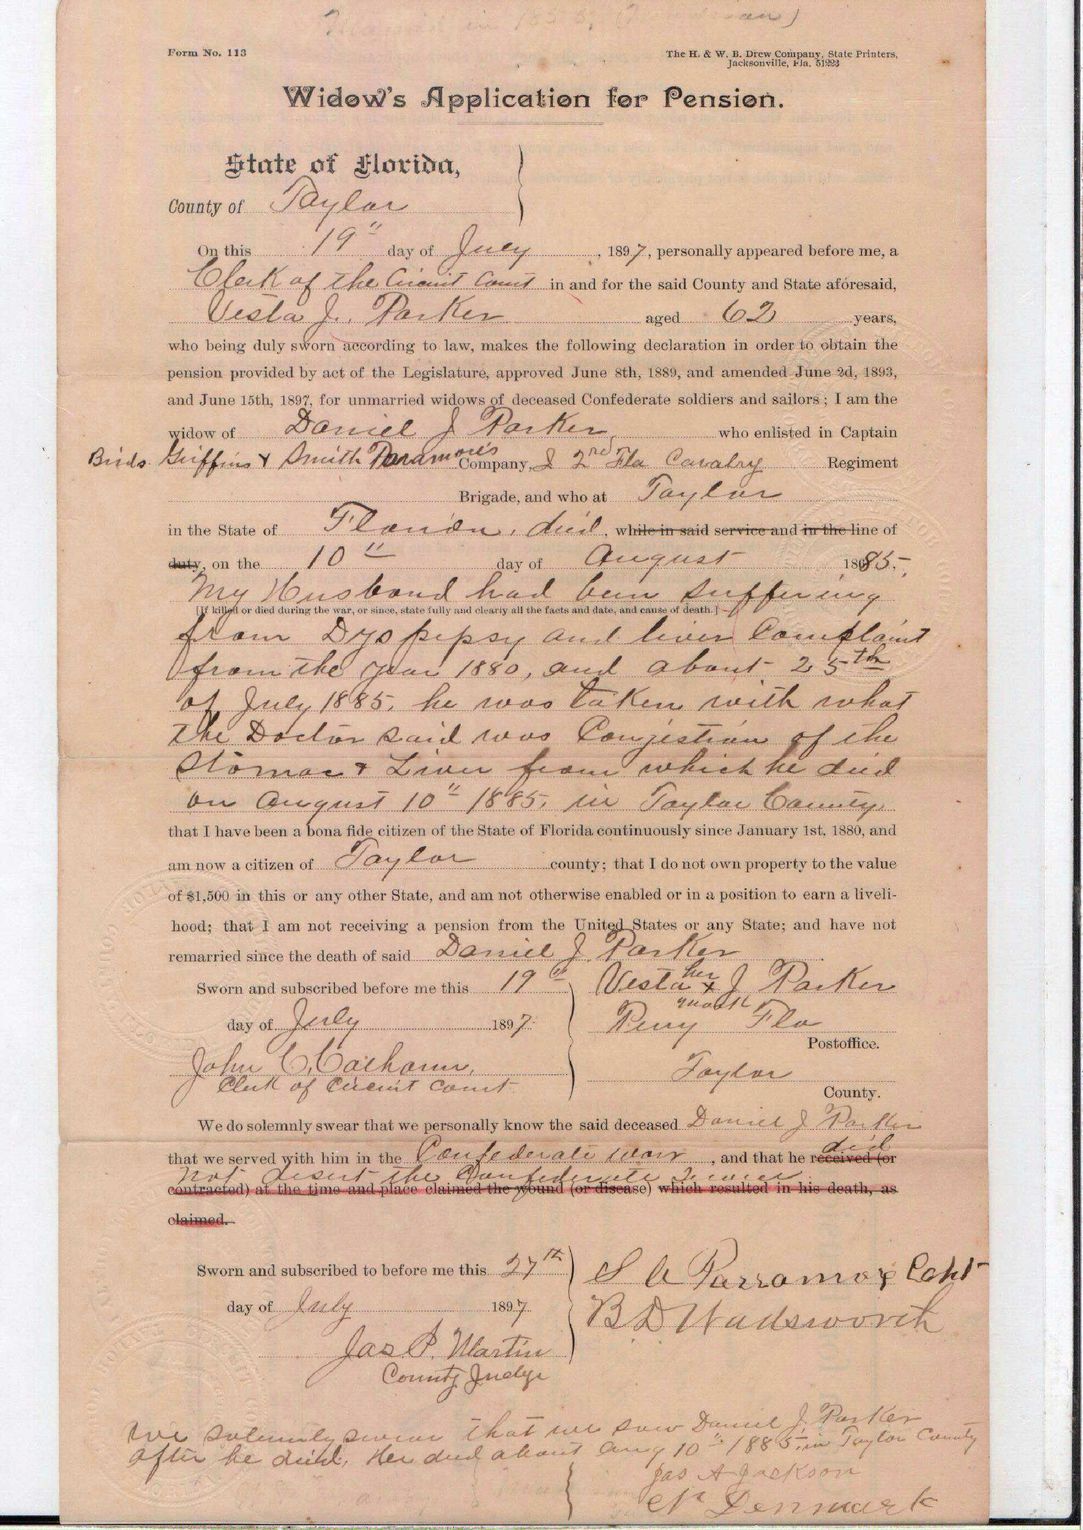 Married in 1856,
Form No. 113
The H. & W. B. Drew Company, State Printers,
Jacksonville, Fla. 51223
Widow's Application for Pension.
State of Florida,
County of Taylor
On this 19" day of July, 1897, personally appeared before me, a
Clerk of the Circuit Court in and for the said County and State aforesaid,
Vesta J. Parker aged 62 years,
who being duly sworn according to law, makes the following declaration in order to obtain the
pension provided by act of the Legislature, approved June 8th, 1889, and amended June 2d, 1893,
and June 15th, 1897, for unmarried widows of deceased Confederate soldiers and sailors; I am the
widow of Daniel J Parker, who enlisted in Captain
Birds Griffins & Smith Paramore's Company, I 2nd Fla Cavalry Regiment
Brigade, and who at Taylor
in the State of Florida, died, while in said service and in the line of
duty, on the 10" day of August 1885.
My Husband had been suffering
[If killed or died during the war, or since, state fully and clearly all the facts and date, and cause of death.]
from Dyspepsy and liver Complaint
from the year 1880, and about 25th
of July 1885, he was taken with what
the Doctor said was Conjestion of the
Stomac & Liver from which he died
on August 10" 1885, in Taylor County.
that I have been a bona fide citizen of the State of Florida continuously since January 1st, 1880, and
am now a citizen of Taylor county; that I do not own property to the value
of $1,500 in this or any other State, and am not otherwise enabled or in a position to earn a liveli-
hood; that I am not receiving a pension from the United States or any State; and have not
remarried since the death of said Daniel J Parker
Sworn and subscribed before me this 19" Vesta her x mark J Parker
day of July 1897. Perry Fla
Postoffice.
John C. Calhoun, Taylor
Clerk of Circuit Court
County.
We do solemnly swear that we personally know the said deceased Daniel J Parker
that we served with him in the Confederate war, and that he received (or did
not desert the Confederate Service
contracted) at the time and place claimed the wound (or disease) which resulted in his death, as
claimed.
Sworn and subscribed to before me this 27th S A Parramore Capt
day of July 1897 B D Wadsworth
Jas P. Martin
County Judge
We solemnly swear that we saw Daniel J. Parker
after he died. He died about Aug 10" 1885, in Taylor County
Jas A Jackson
Denmark